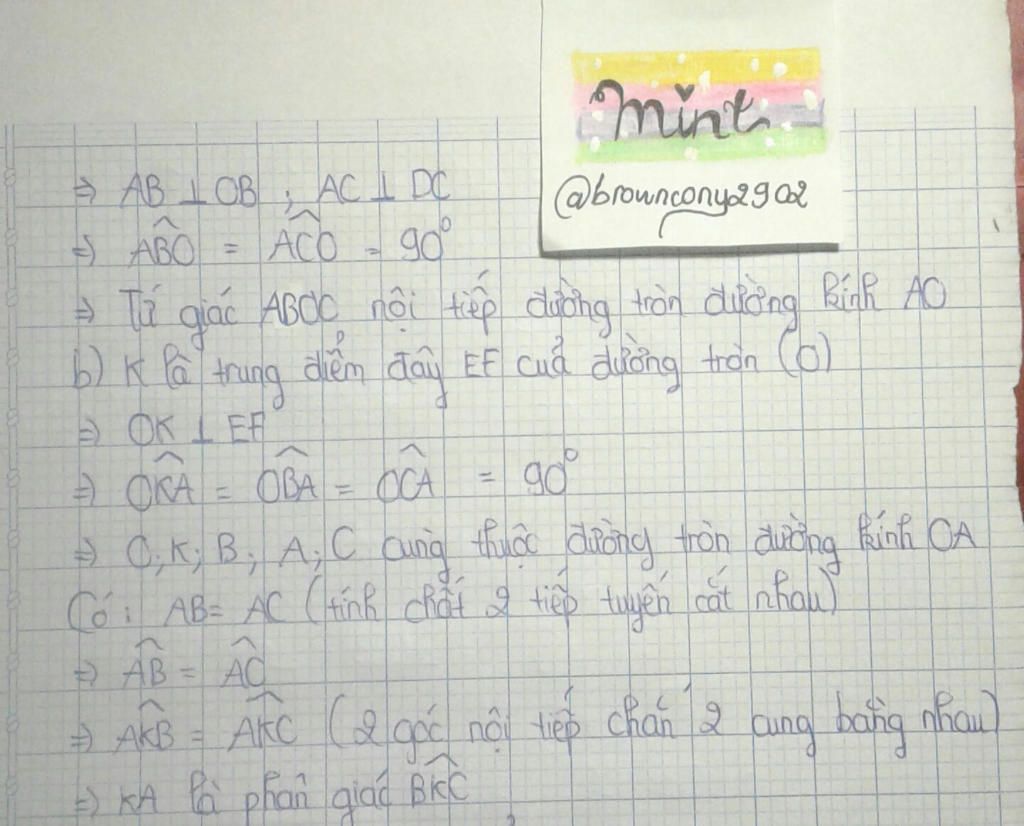 Mint
@browncony2902
⇒ AB ⊥ OB ; AC ⊥ DC
⇒ \widehat{ABO} = \widehat{ACO} = 90°
⇒ Tứ giác ABOC nội tiếp đường tròn đường kính AO
b) K là trung điểm dây EF của đường tròn (O)
⇒ OK ⊥ EF
⇒ \widehat{OKA} = \widehat{OBA} = \widehat{OCA} = 90°
⇒ O; K; B; A; C cùng thuộc đường tròn đường kính OA
Có: AB = AC (tính chất 2 tiếp tuyến cắt nhau)
⇒ \widehat{AB} = \widehat{AC}
⇒ \widehat{AKB} = \widehat{AKC} (2 góc nội tiếp chắn 2 cung bằng nhau)
⇒ KA là phân giác \widehat{BKC}